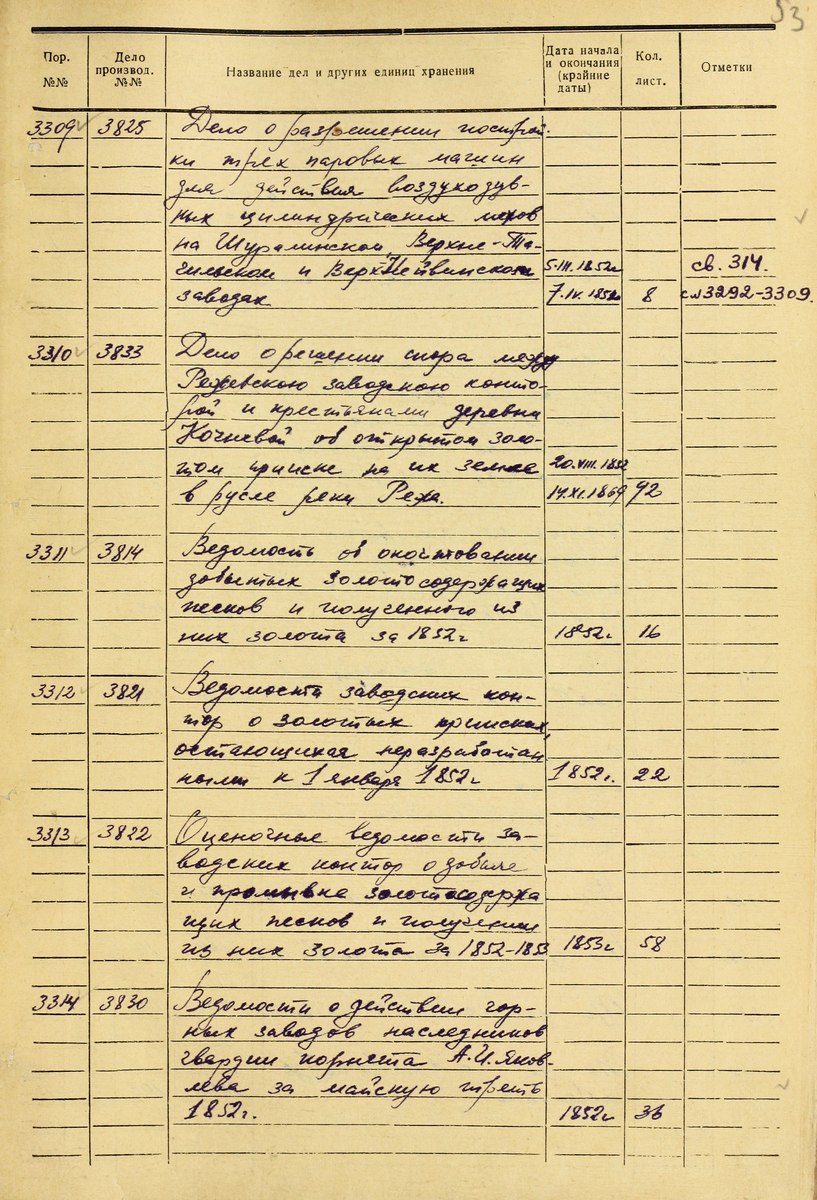 53
Пор. №№ Дело производ. №№ Название дел и других единиц хранения Дата начала и окончания (крайние даты) Кол. лист. Отметки
3309 3825 Дело о разрешении построй-
ки трех паровых машин
для действия воздуходув-
ных цилиндрических мехов
на Шуралинском, Верхне-Та-
гильском и Верх-Нейвинском 5.III.1852г св. 314.
заводах 7.IV.1852г 8 сл 3292-3309.
3310 3833 Дело о решении спора между
Режевскою заводскою конто-
рой и крестьянами деревни
Кочневой об открытом золо-
том прииске на их земле 20.VIII.1852
в русле реки Режа. 14.XI.1869 92
3311 3814 Ведомость об окочтовании
добытых золотосодержащих
песков и полученного из
них золота за 1852г 1852г 16
3312 3821 Ведомости заводских кон-
тор о золотых приисках,
остающихся неразработан
ными к 1 января 1852г 1852г. 22
3313 3822 Оценочные ведомости за-
водских контор о добыче
и промывке золотосодержа
щих песков и получении
из них золота за 1852-1853 1853г 58
3314 3830 Ведомости о действии гор-
ных заводов наследников
гвардии корнета А.И. Яков-
лева за майскую треть
1852г. 1852г 36